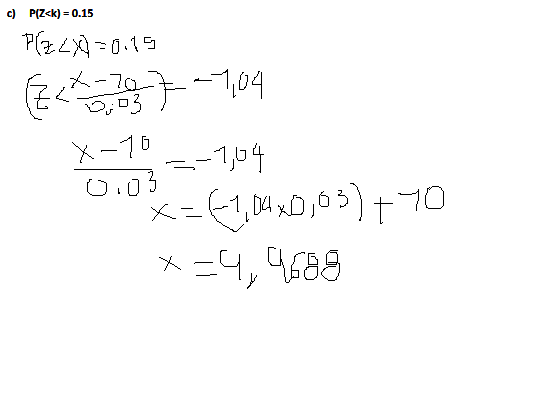 c) P(Z<k) = 0.15
P(Z<X)=0.15
(Z<x-10/0.03)=-1,04
x-10/0.03=-1,04
x=(-1,04x0,03)+10
x=9,9688